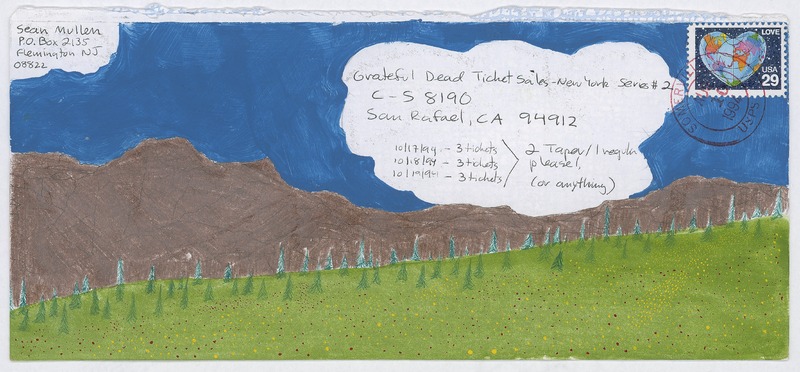 Sean Mullen
P.O. Box 2135
Flemington NJ
08822
Grateful Dead Ticket Sales-New York Series #2
C-S 8190
San Rafael, CA 94912
10/17/94 - 3 tickets
10/18/94 - 3 tickets
10/19/94 - 3 tickets
2 Taper/1 regular
please!
(or anything)
LOVE
USA
29
1994
USPS